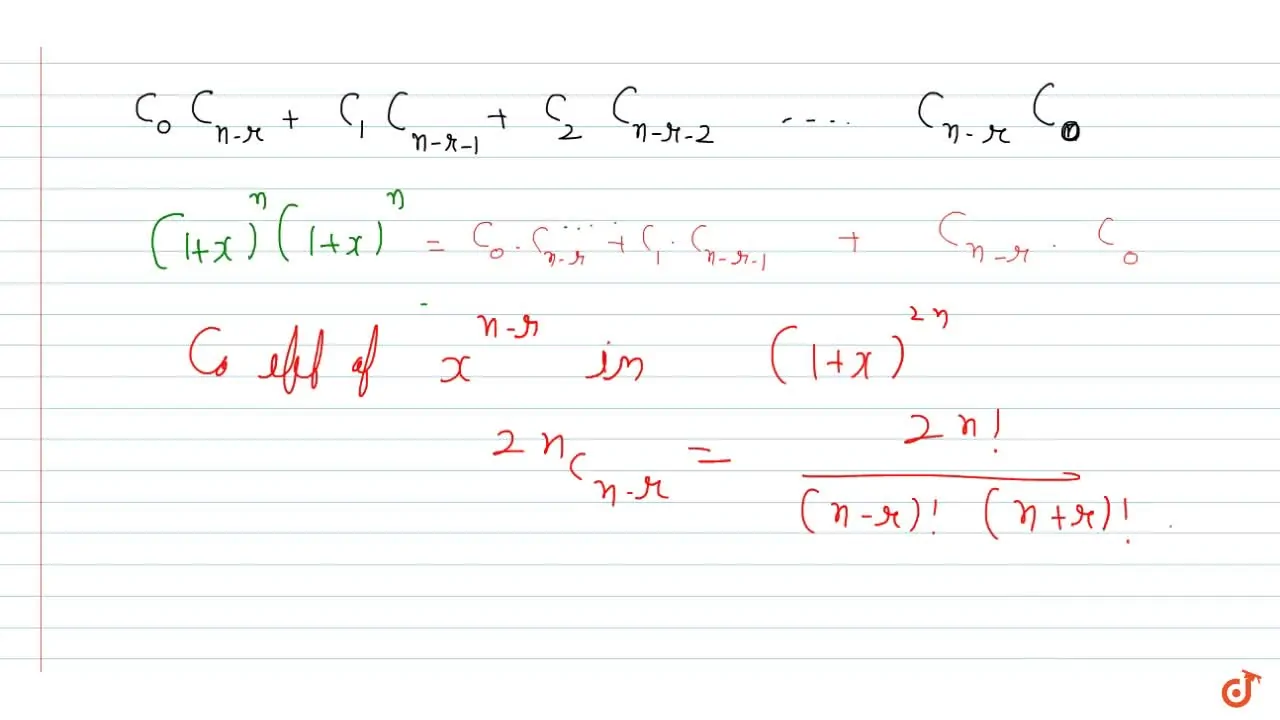 C₀ Cₙ₋ᵣ + C₁ Cₙ₋ᵣ₋₁ + C₂ Cₙ₋ᵣ₋₂ ---- Cₙ₋ᵣ C₀
(1+x)ⁿ (1+x)ⁿ = C₀ · Cₙ₋ᵣ ... + C₁ · Cₙ₋ᵣ₋₁ + Cₙ₋ᵣ · C₀
Co eff of xⁿ⁻ʳ in (1+x)²ⁿ
2nCₙ₋ᵣ = 2n! / (n-r)! (n+r)!